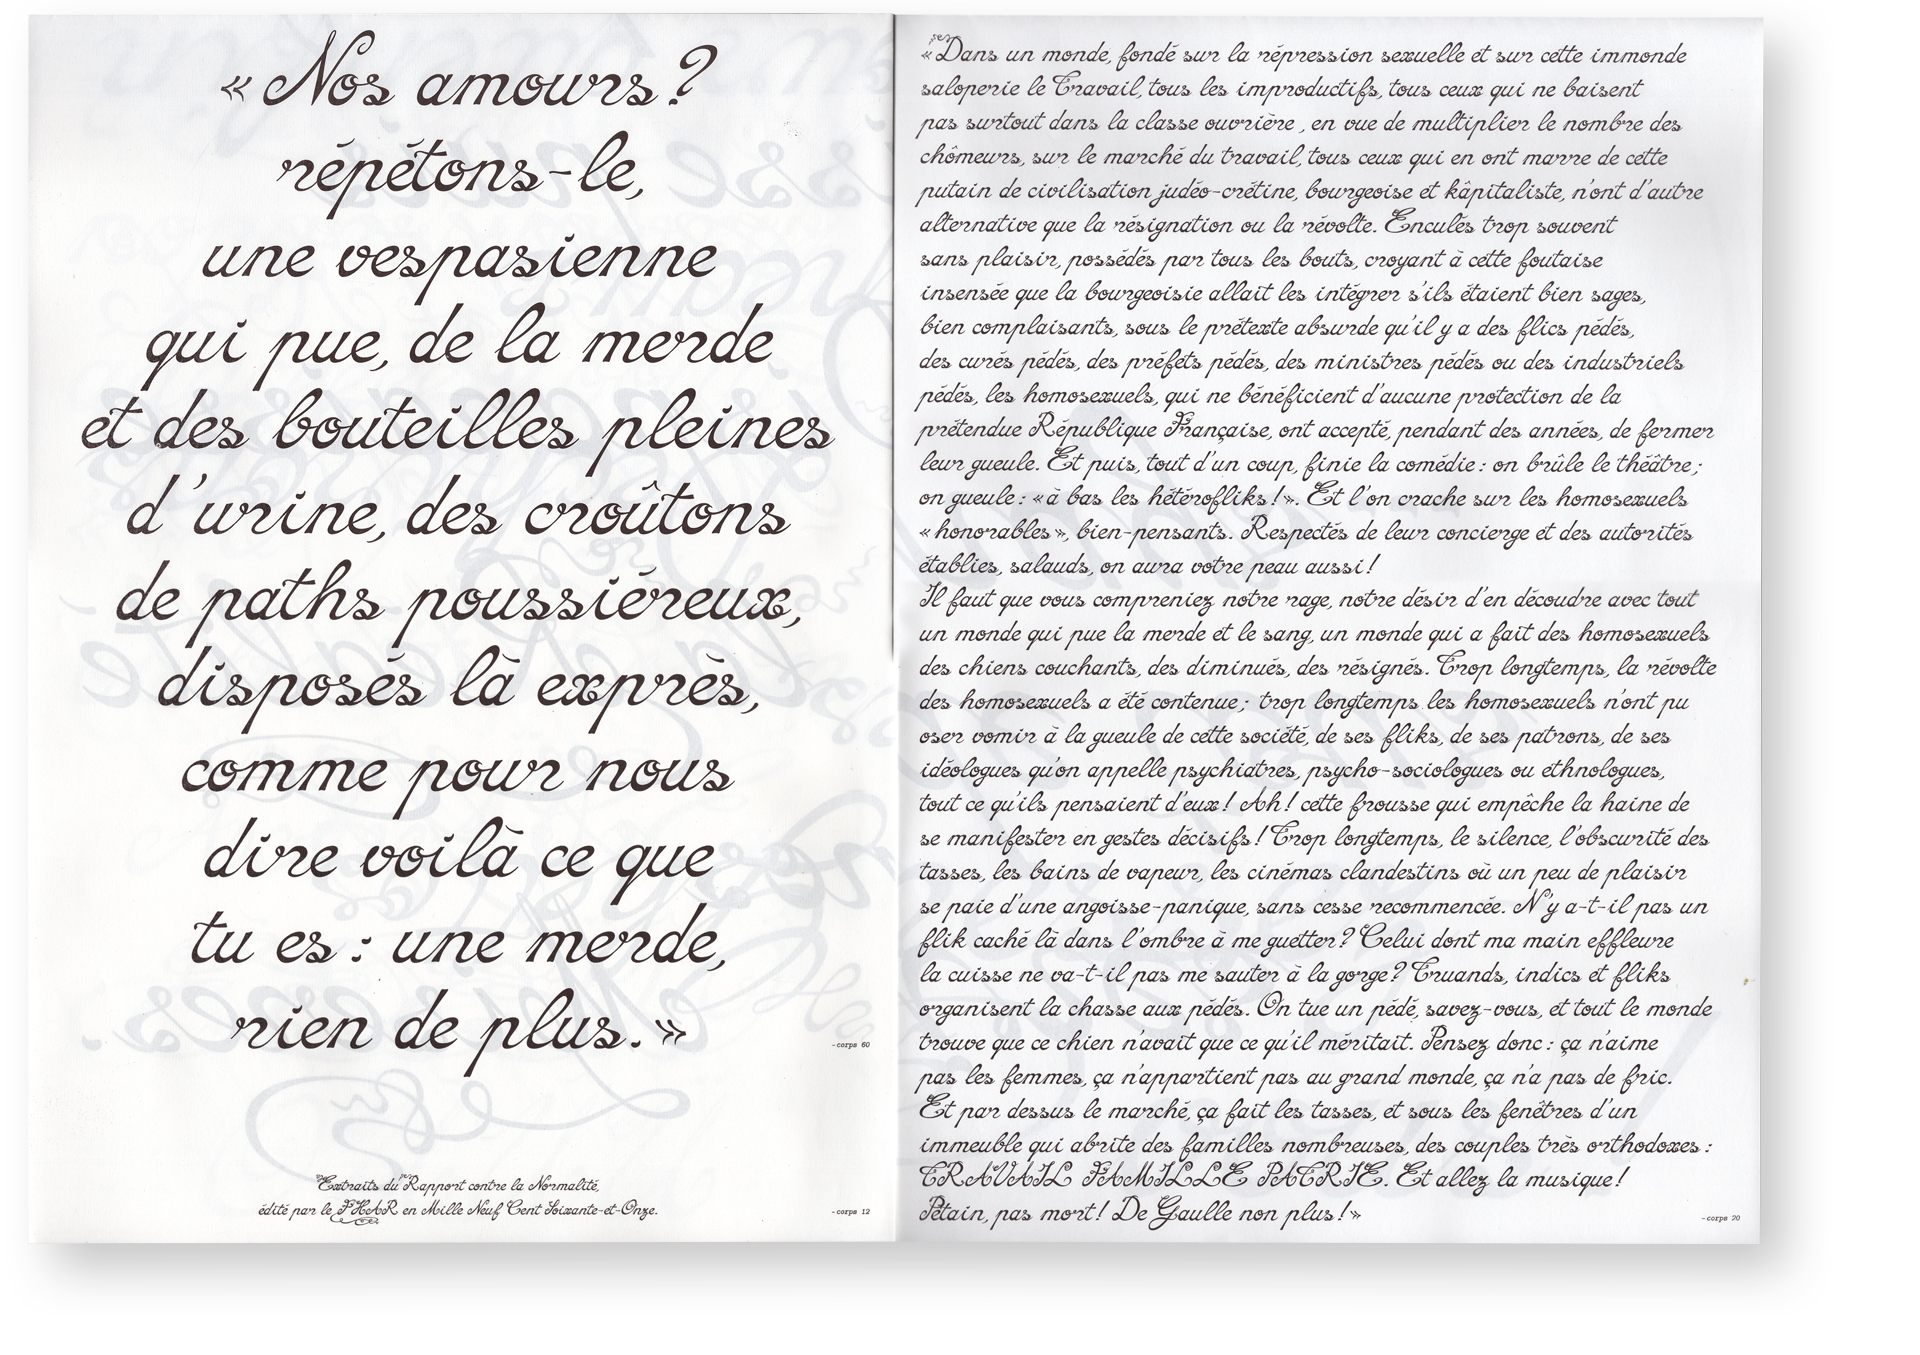 « Nos amours ?
répétons-le,
une vespasienne
qui pue, de la merde
et des bouteilles pleines
d'urine, des croûtons
de paths poussiéreux,
disposés là exprès,
comme pour nous
dire voilà ce que
tu es : une merde,
rien de plus. »
-corps 60
Extraits du Rapport contre la Normalité,
édité par le FHAR en Mille Neuf Cent Soixante-et-Onze.
-corps 12
« Dans un monde, fondé sur la répression sexuelle et sur cette immonde
saloperie le Travail, tous les improductifs, tous ceux qui ne baisent
pas surtout dans la classe ouvrière , en vue de multiplier le nombre des
chômeurs, sur le marché du travail, tous ceux qui en ont marre de cette
putain de civilisation judéo-crétine, bourgeoise et kâpitaliste, n'ont d'autre
alternative que la résignation ou la révolte. Enculés trop souvent
sans plaisir, possédés par tous les bouts, croyant à cette foutaise
insensée que la bourgeoisie allait les intégrer s'ils étaient bien sages,
bien complaisants, sous le prétexte absurde qu'il y a des flics pédés,
des curés pédés, des préfets pédés, des ministres pédés ou des industriels
pédés, les homosexuels, qui ne bénéficient d'aucune protection de la
prétendue République Française, ont accepté, pendant des années, de fermer
leur gueule. Et puis, tout d'un coup, finie la comédie : on brûle le théâtre ;
on gueule : « à bas les hétérofliks ! ». Et l'on crache sur les homosexuels
« honorables », bien-pensants. Respectés de leur concierge et des autorités
établies, salauds, on aura votre peau aussi !
Il faut que vous compreniez notre rage, notre désir d'en découdre avec tout
un monde qui pue la merde et le sang, un monde qui a fait des homosexuels
des chiens couchants, des diminués, des résignés. Trop longtemps, la révolte
des homosexuels a été contenue ; trop longtemps les homosexuels n'ont pu
oser vomir à la gueule de cette société, de ses fliks, de ses patrons, de ses
idéologues qu'on appelle psychiatres, psycho-sociologues ou éthnologues,
tout ce qu'ils pensaient d'eux ! Ah ! cette frousse qui empêche la haine de
se manifester en gestes décisifs ! Trop longtemps, le silence, l'obscurité des
tasses, les bains de vapeur, les cinémas clandestins où un peu de plaisir
se paie d'une angoisse-panique, sans cesse recommencée. N'y a-t-il pas un
flik caché là dans l'ombre à me guetter ? Celui dont ma main effleure
la cuisse ne va-t-il pas me sauter à la gorge ? Truands, indics et fliks
organisent la chasse aux pédés. On tue un pédé, savez-vous, et tout le monde
trouve que ce chien n'avait que ce qu'il méritait. Pensez donc : ça n'aime
pas les femmes, ça n'appartient pas au grand monde, ça n'a pas de fric.
Et par dessus le marché, ça fait les tasses, et sous les fenêtres d'un
immeuble qui abrite des familles nombreuses, des couples très orthodoxes :
TRAVAIL FAMILLE PATRIE. Et allez la musique !
Pétain, pas mort ! De Gaulle non plus ! »
-corps 20